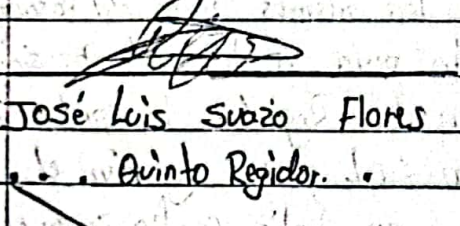 José Luis Suazo Flores
. . . Quinto Regidor. .